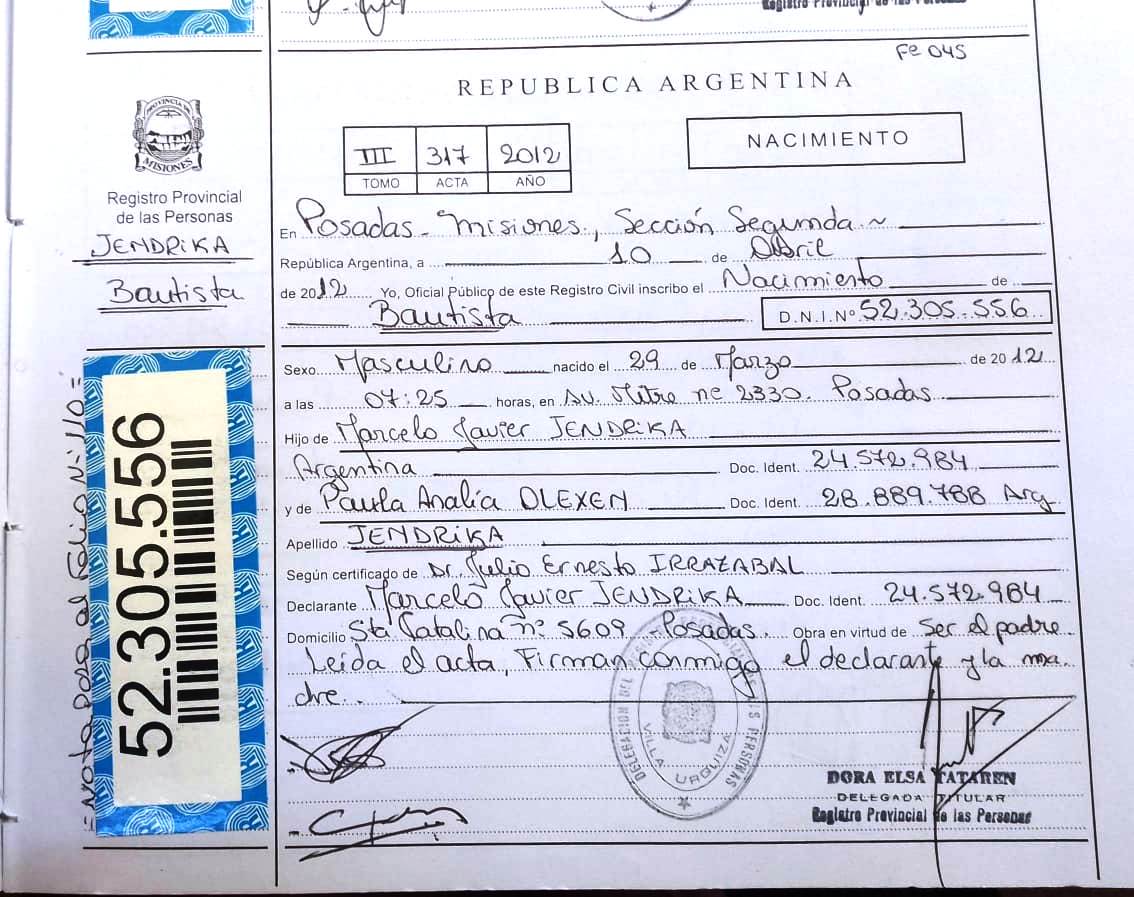 Registro Provincial de las Personas
Fe 045
REPUBLICA ARGENTINA
PROVINCIA DE
MISIONES
Registro Provincial
de las Personas
JENDRIKA
Bautista
III 317 2012
TOMO ACTA AÑO
NACIMIENTO
En Posadas - Misiones, Sección Segunda ~
República Argentina, a 10 de Abril
de 2012 Yo, Oficial Público de este Registro Civil inscribo el Nacimiento de
Bautista D.N.I.Nº 52.305.556
Sexo Masculino nacido el 29 de Marzo de 2012
a las 07:25 horas, en Av. Mitre nº 2330. Posadas
Hijo de Marcelo Javier JENDRIKA
Argentina Doc. Ident. 24.572.984
y de Paula Analía OLEXEN Doc. Ident. 28.889.788 Arg
Apellido JENDRIKA
Según certificado de Dr. Julio Ernesto IRRAZABAL
Declarante Marcelo Javier JENDRIKA Doc. Ident. 24.572.984
Domicilio Sta Catalina nº 5609 - Posadas. Obra en virtud de Ser el padre
Leída el acta, Firman conmigo el declarante y la ma-
dre.
= Nota pasa al Folio Nº 110 =
52.305.556
DELEGACION DEL REGISTRO PROVINCIAL DE LAS PERSONAS
VILLA URQUIZA
DORA ELSA TATAREN
DELEGADA TITULAR
Registro Provincial de las Personas